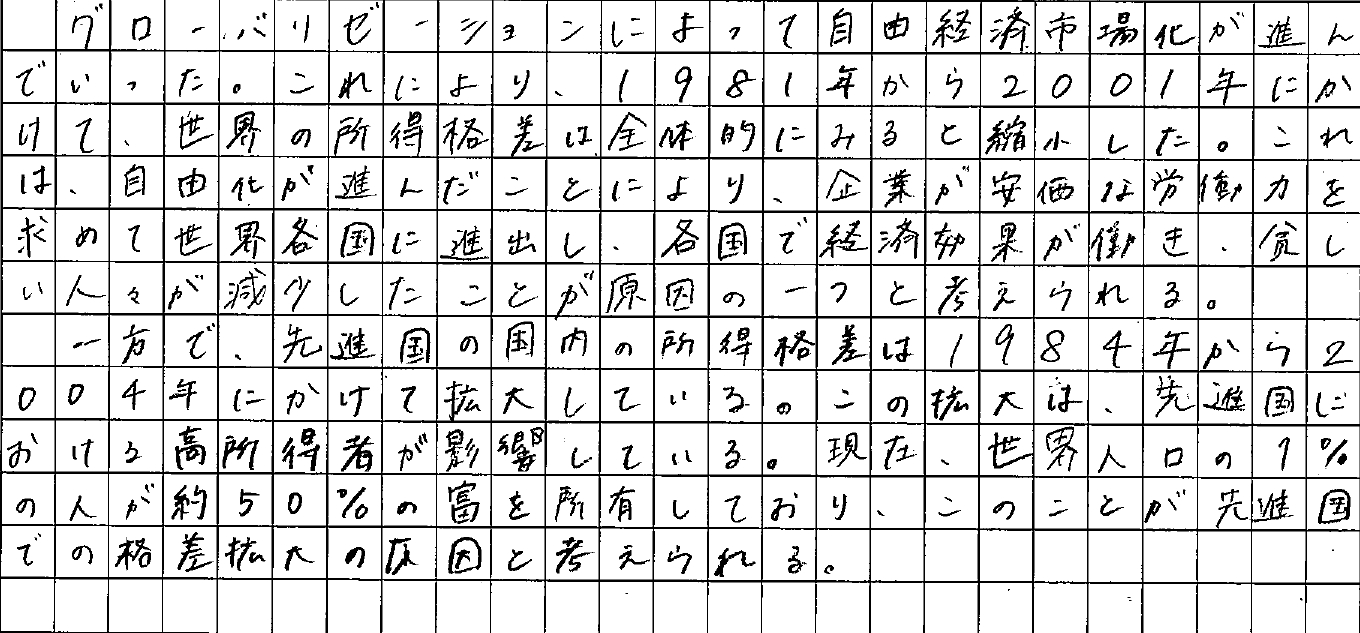 グローバリゼーションによって自由経済市場化が進ん
でいった。これにより、1981年から2001年にか
けて、世界の所得格差は全体的にみると縮小した。これ
は、自由化が進んだことにより、企業が安価な労働力を
求めて世界各国に進出し、各国で経済効果が働き、貧し
い人々が減少したことが原因の一つと考えられる。
一方で、先進国の国内の所得格差は1984年から2
004年にかけて拡大している。この拡大は、先進国に
おける高所得者が影響している。現在、世界人口の1%
の人が約50%の富を所有しており、このことが先進国
での格差拡大の原因と考えられる。